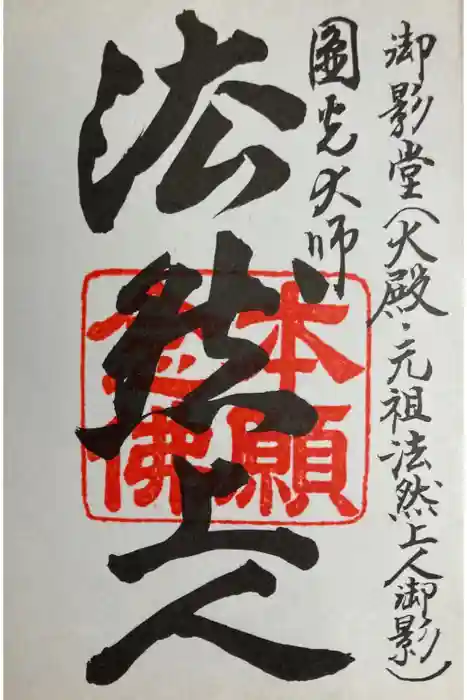 御影堂(大殿・元祖法然上人御影)
圓光大師
法然上人
本願
念佛